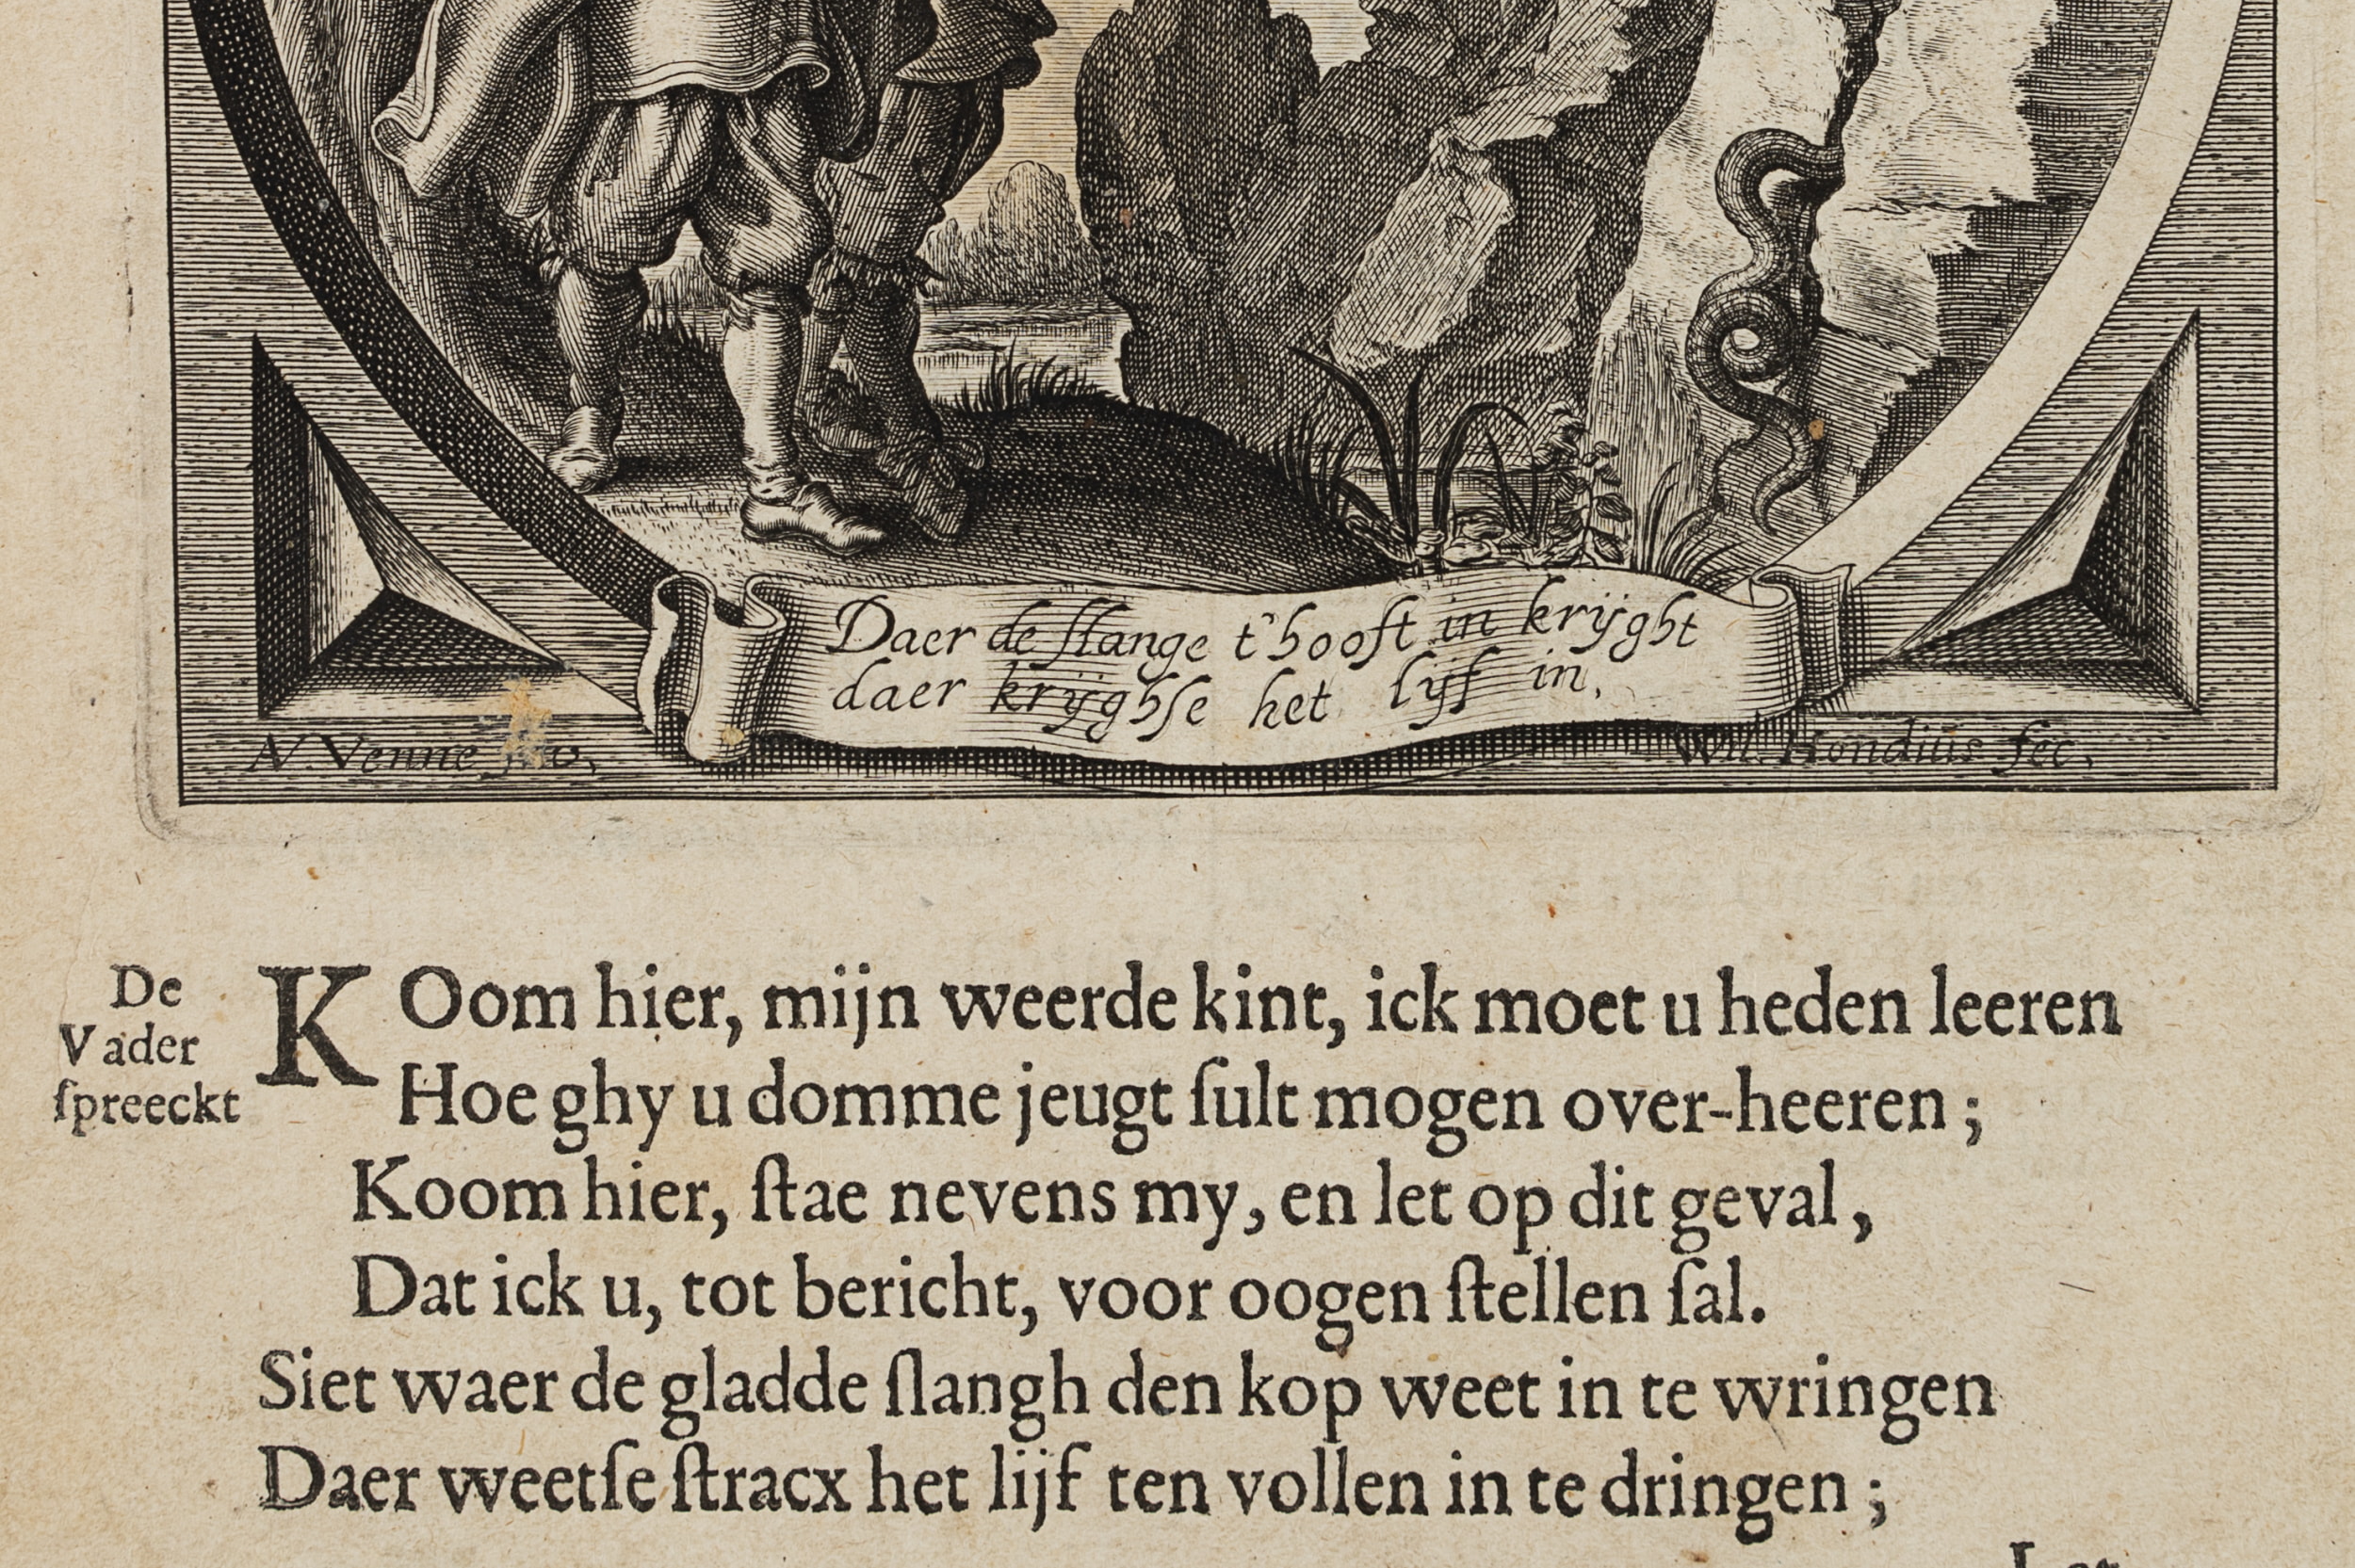 Daer de ſlange t'hooft in krijght
daer krijghſe het lijf in.
Venne
Wil. Hondius fec.
De
Vader
ſpreeckt
KOom hier, mijn weerde kint, ick moet u heden leeren
Hoe ghy u domme jeugt ſult mogen over-heeren;
Koom hier, ſtae nevens my, en let op dit geval,
Dat ick u, tot bericht, voor oogen ſtellen ſal.
Siet waer de gladde ſlangh den kop weet in te wringen
Daer weetſe ſtracx het lijf ten vollen in te dringen;